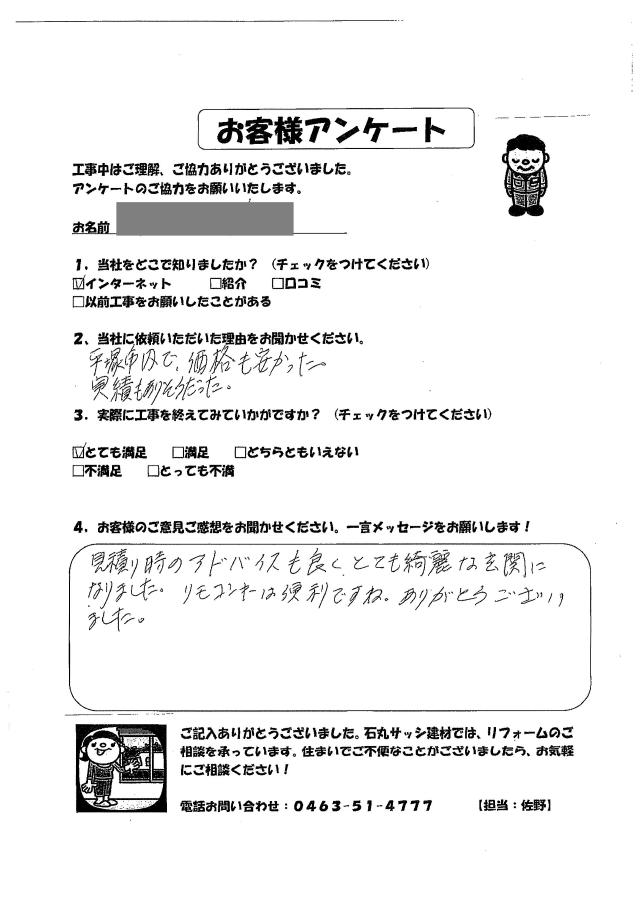 お客様アンケート
工事中はご理解、ご協力ありがとうございました。
アンケートのご協力をお願いいたします。
お名前
1．当社をどこで知りましたか？（チェックをつけてください）
☑インターネット　□紹介　□口コミ
□以前工事をお願いしたことがある
2、当社に依頼いただいた理由をお聞かせください。
平塚市内で、価格も安かった。
実績もありそうだった。
3．実際に工事を終えてみていかがですか？（チェックをつけてください）
☑とても満足　□満足　□どちらともいえない
□不満足　□とっても不満
4．お客様のご意見ご感想をお聞かせください。一言メッセージをお願いします！
見積り時のアドバイスも良く、とても綺麗な玄関に
なりました。リモコンキーは便利ですね。ありがとうござい
ました。
ご記入ありがとうございました。石丸サッシ建材では、リフォームのご
相談を承っています。住まいでご不便なことがございましたら、お気軽
にご相談ください！
電話お問い合わせ：0463-51-4777　【担当：佐野】